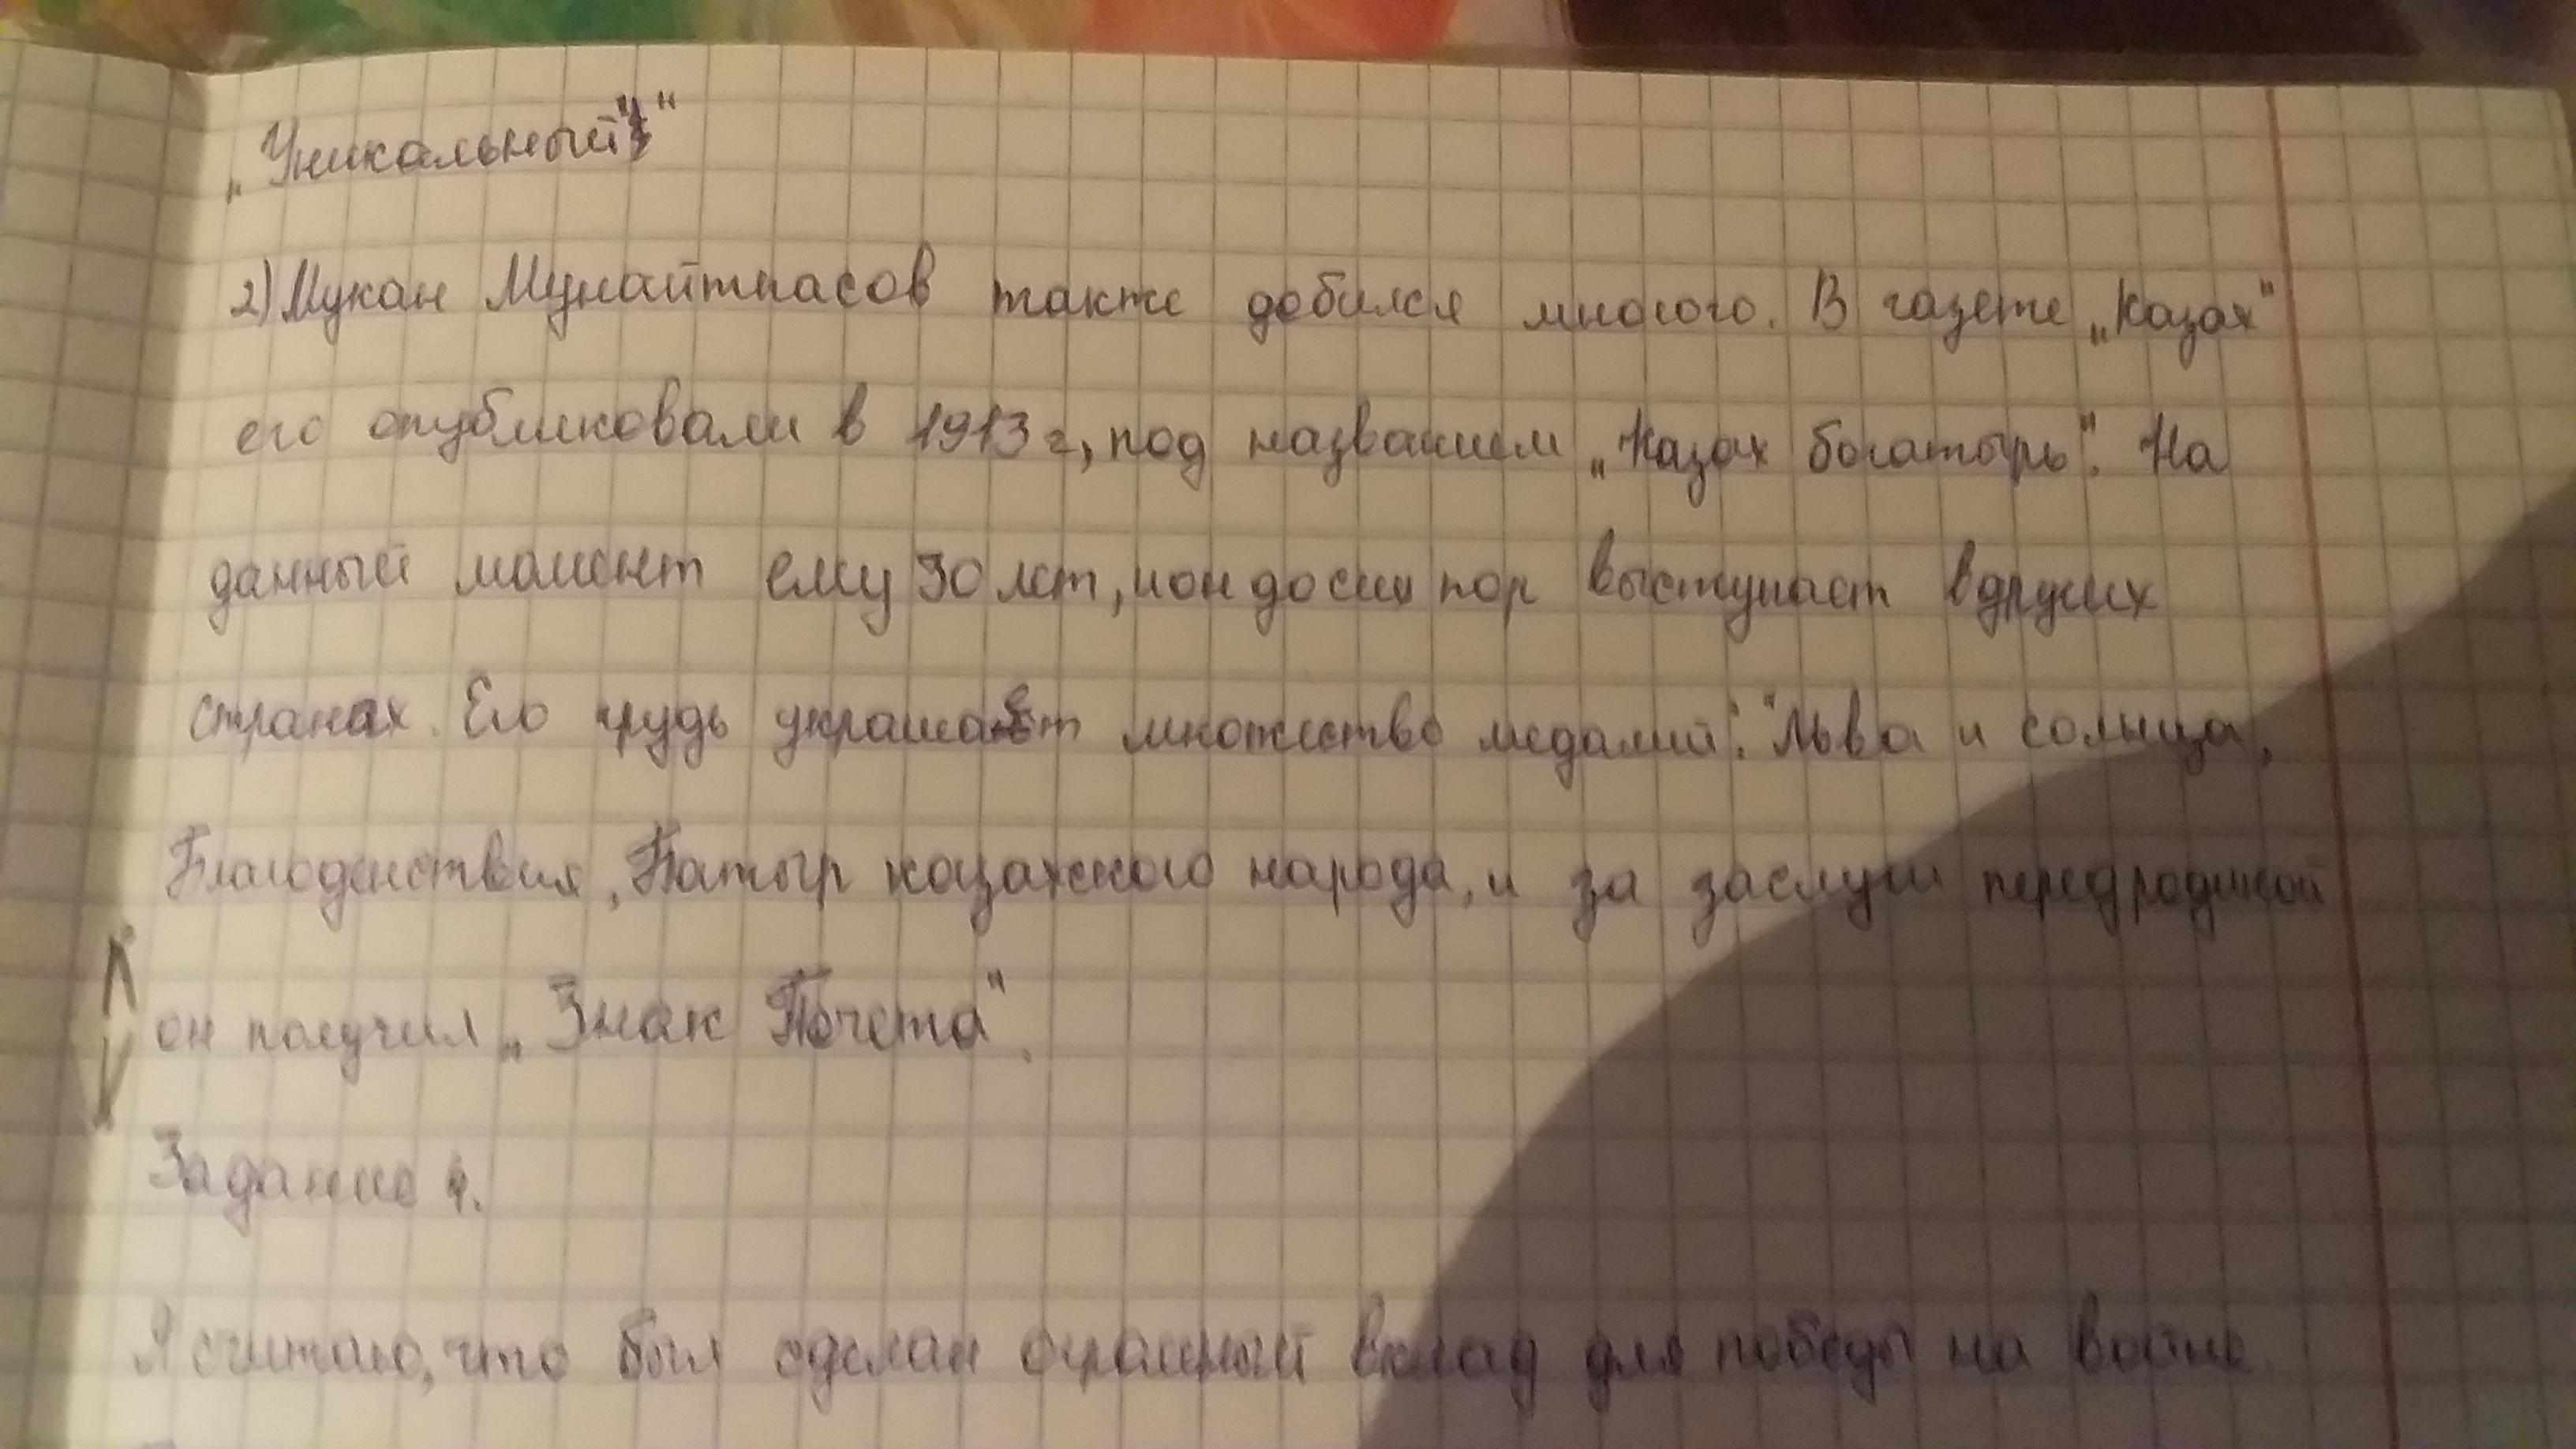 „Уникальный"
2) Мукан Мунайтпасов также добился многого. В газете „Казах"
его опубликовали в 1913 г, под названием „Казах богатырь". На
данный момент ему 30 лет, и он до сих пор выступает в других
странах. Его грудь украшает множество медалий: "Льва и солнца,
Благоденствия, Батыр казахского народа, и за заслуги перед родиной
он получил „Знак Почета".
Задание 4.
Я считаю, что был сделан огромный вклад для победы на войне.